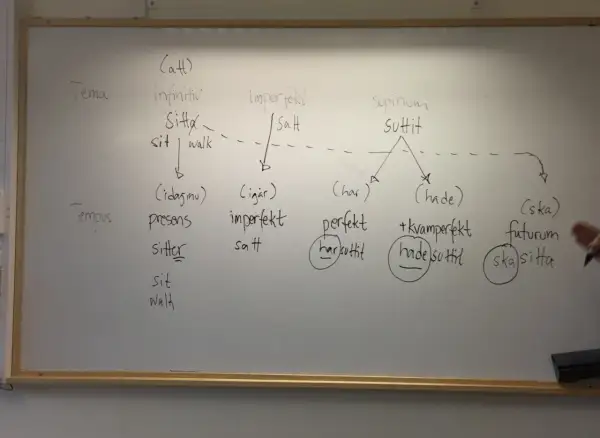 (att)
Tema infinitiv imperfekt supinum
sitta satt suttit
sit walk
(idag/nu) (igår) (har) (hade) (ska)
Tempus presens imperfekt perfekt +kvamperfekt futurum
sitter satt har suttit hade suttit ska sitta
sit
walk